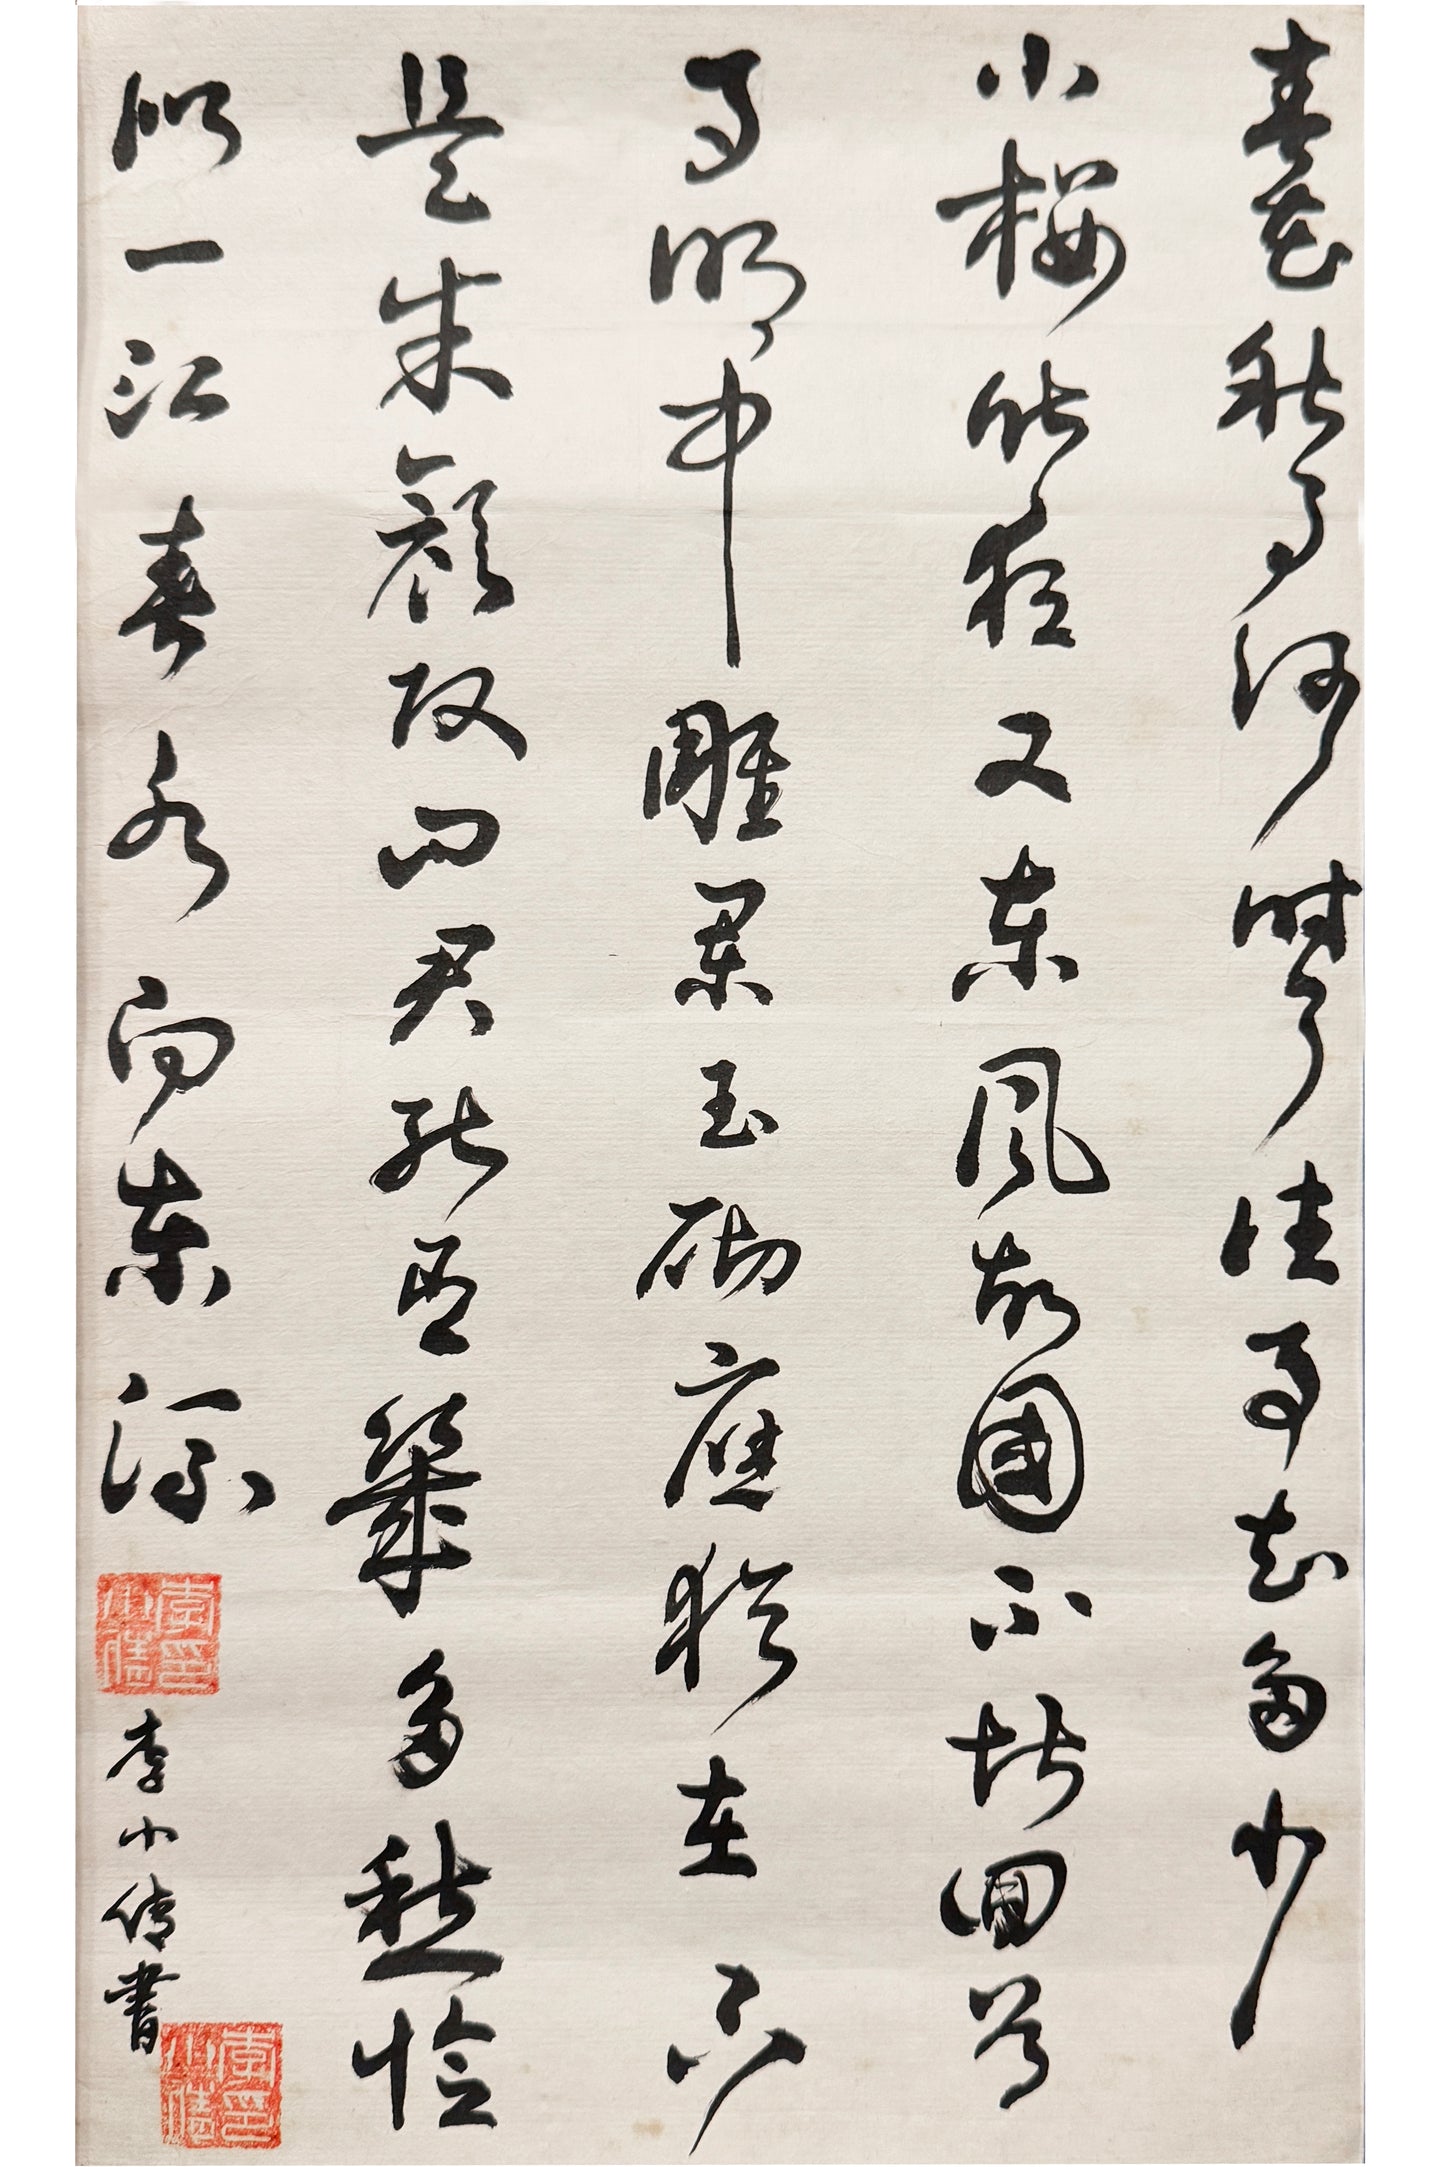 春花秋月何時了往事知多少
小樓昨夜又東風故國不堪回首
月明中雕闌玉砌應猶在只
是朱顏改問君能有幾多愁恰
似一江春水向東流
李小倩書
李印小倩
李印小倩